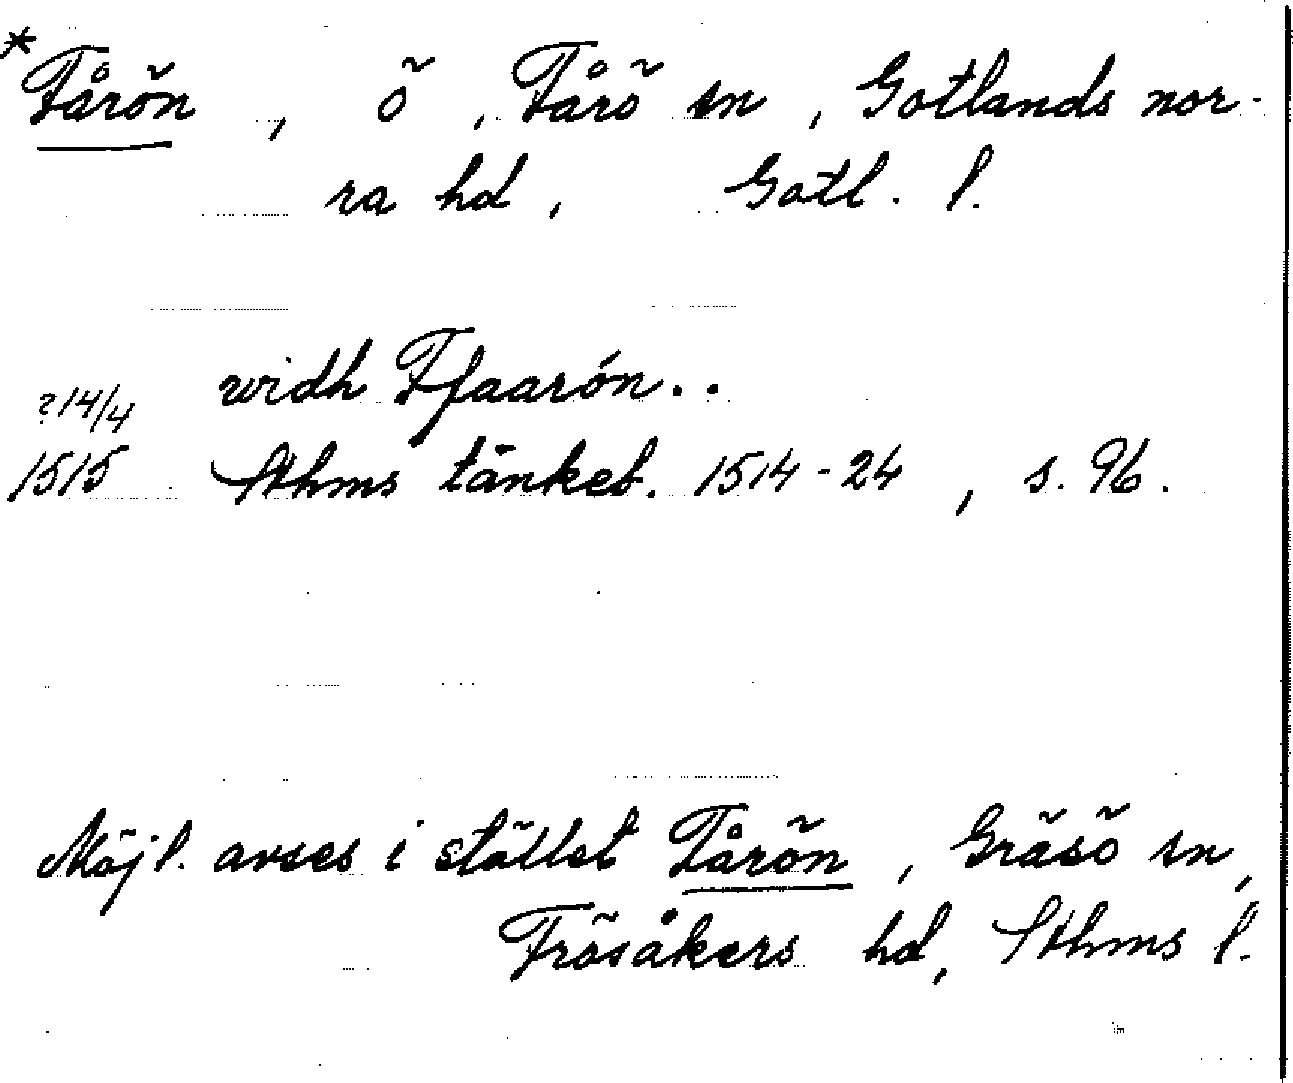 *Fårön, ö, Fårö sn, Gotlands nor-
ra hd, Gotl. l.
widh Ffaarön..
?14/4
1515 Sthms tänkeb. 1514-24, s. 96.
Möjl. avses i stället Fårön, Gräsö sn,
Frösåkers hd, Sthms l.